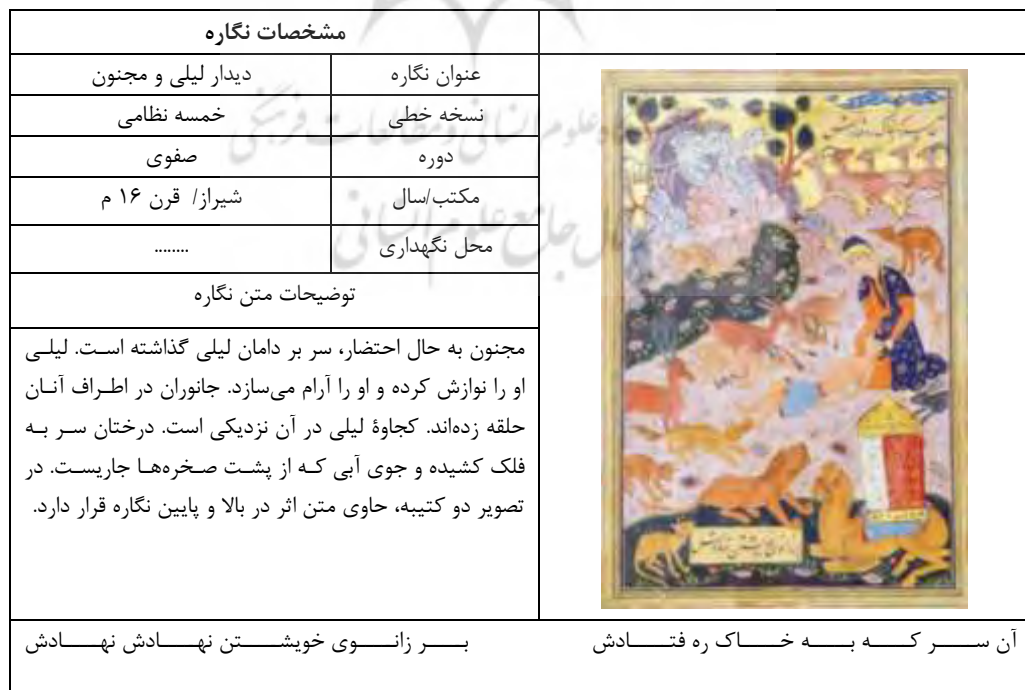 مشخصات نگاره
عنوان نگاره	دیدار لیلی و مجنون
نسخه خطی	خمسه نظامی
دوره	صفوی
مکتب/سال	شیراز/ قرن ۱۶ م
محل نگهداری	........
توضیحات متن نگاره
مجنون به حال احتضار، سر بر دامان لیلی گذاشته اسـت. لیلـی
او را نوازش کرده و او را آرام می‌سازد. جانوران در اطـراف آنـان
حلقه زده‌اند. کجاوۀ لیلی در آن نزدیکی است. درختان سـر بـه
فلک کشیده و جوی آبی کـه از پشـت صـخره‌هـا جاریسـت. در
تصویر دو کتیبه، حاوی متن اثر در بالا و پایین نگاره قرار دارد.
آن ســـر کـــه بـــه خـــاک ره فتـــادش	بـــر زانـــوی خویشـــتن نهـــادش نهـــادش
علوم انسانی و مطالعات فرهنگی
جامع علوم انسانی